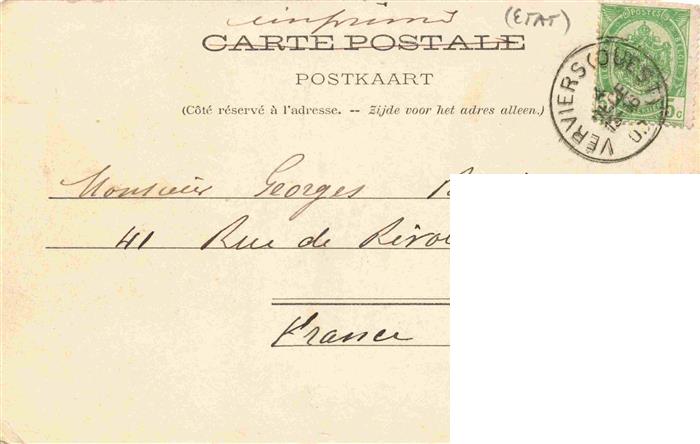 imprimé
(ETAT)
CARTE POSTALE
POSTKAART
(Côté réservé à l'adresse. -- Zijde voor het adres alleen.)
VERVIERS (OUEST)
POSTES
Monsieur Georges
41 Rue de
France